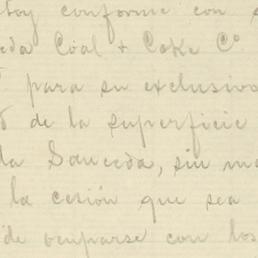 toy conforme con
eda Coal & Coke Co
para su exclusivo
de la superficie
la Sauceda, sin
la cesión que sea
de ocuparse con los